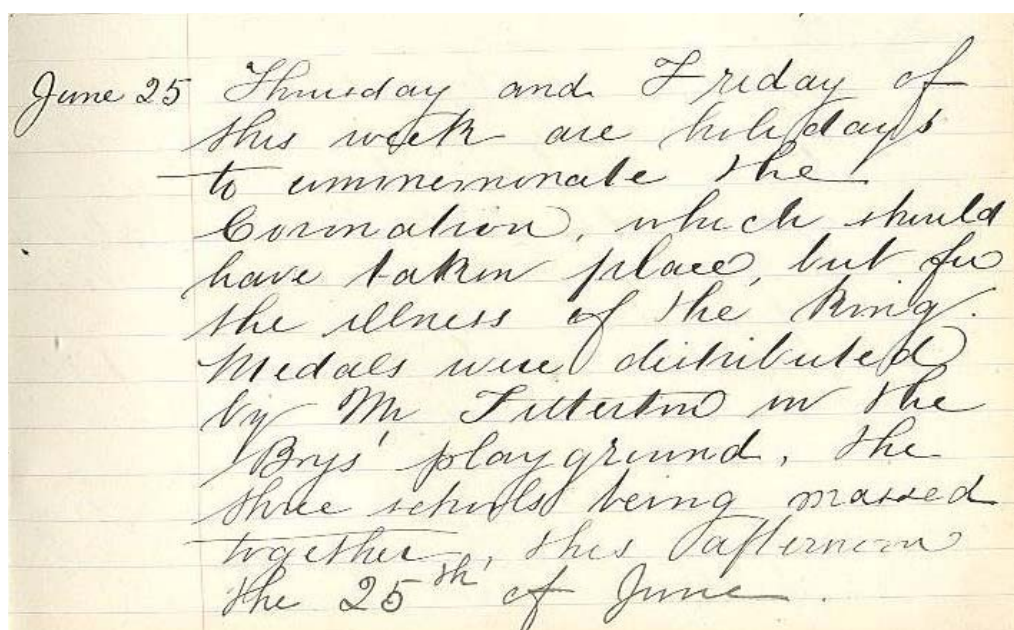 June 25 Thursday and Friday of
this week are holidays
to commemorate the
Coronation, which should
have taken place, but for
the illness of the King.
Medals were distributed
by Mr in the
Boys' playground, the
three schools being massed
together, this afternoon
the 25th of June.